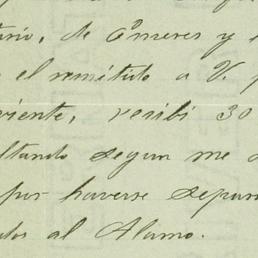 tario, de Omeres y
el remitido a V. p
viente, recibi 30
ltando segun me
por haverse separa
dos al Alamo.